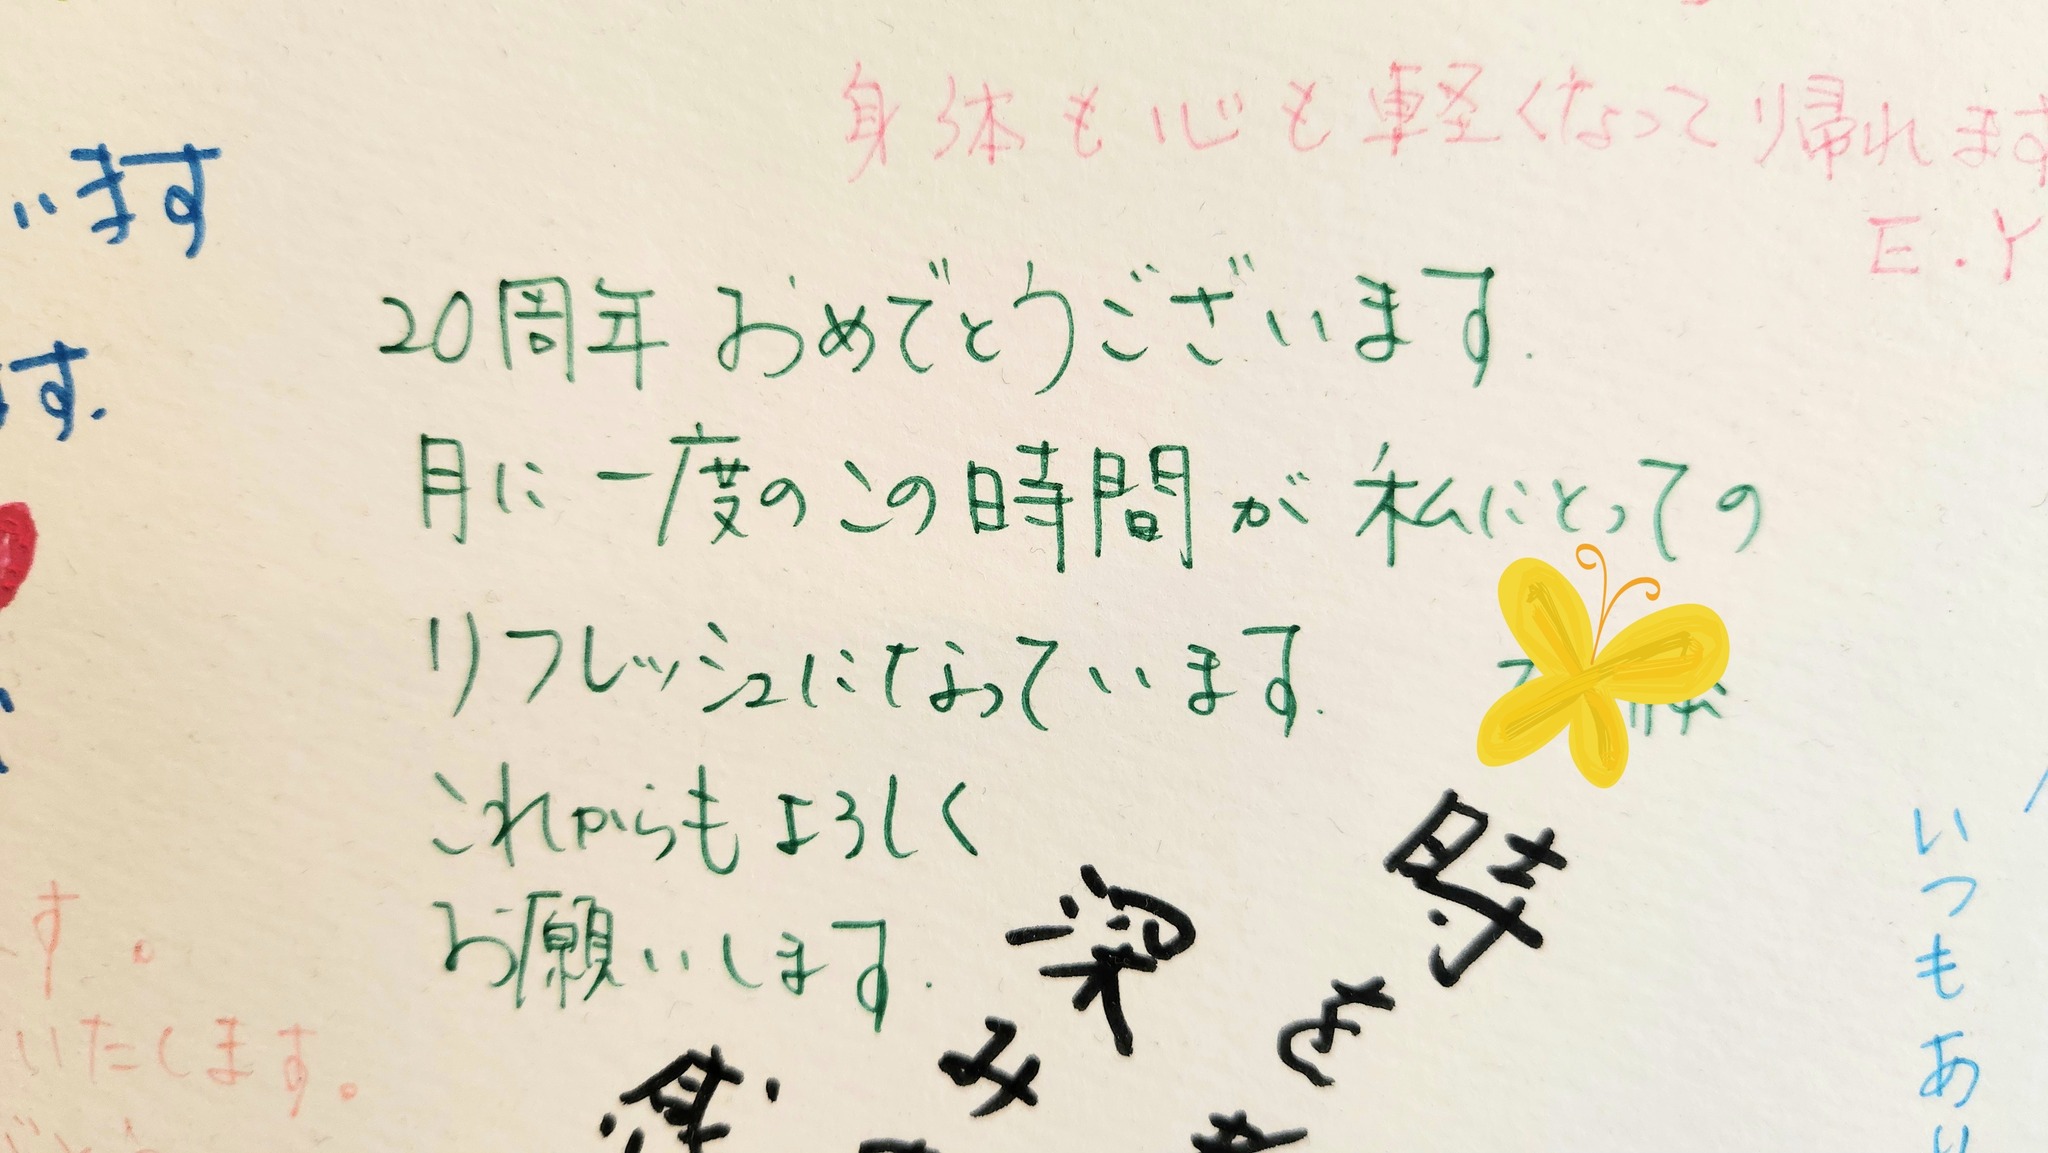 身体も心も軽くなって帰れます
E.Y
います
す.
20周年 おめでとうございます.
月に一度の この時間が 私にとっての
リフレッシュになっています.
これからもよろしく
お願いします.
時を
深み
感
いつもあり
す。
いたします。